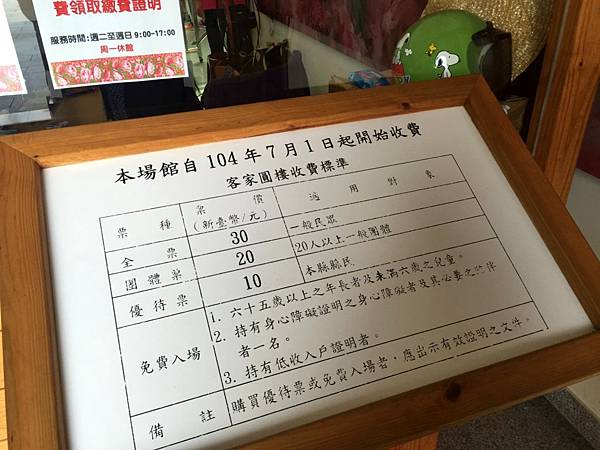 費領取繳費證明
服務時間:週二至週日 9:00-17:00
周一休館
本場館自 104 年 7 月 1 日起開始收費
客家圓樓收費標準
票 種
票 價
(新臺幣/元)
適 用 對 象
全 票
30
一般民眾
團 體 票
20
20人以上一般團體
優 待 票
10
本縣縣民
免費入場
1. 六十五歲以上之年長者及未滿六歲之兒童。
2. 持有身心障礙證明之身心障礙者及其必要之陪伴
者一名。
3. 持有低收入戶證明者。
備 註
購買優待票或免費入場者,應出示有效證明之文件。